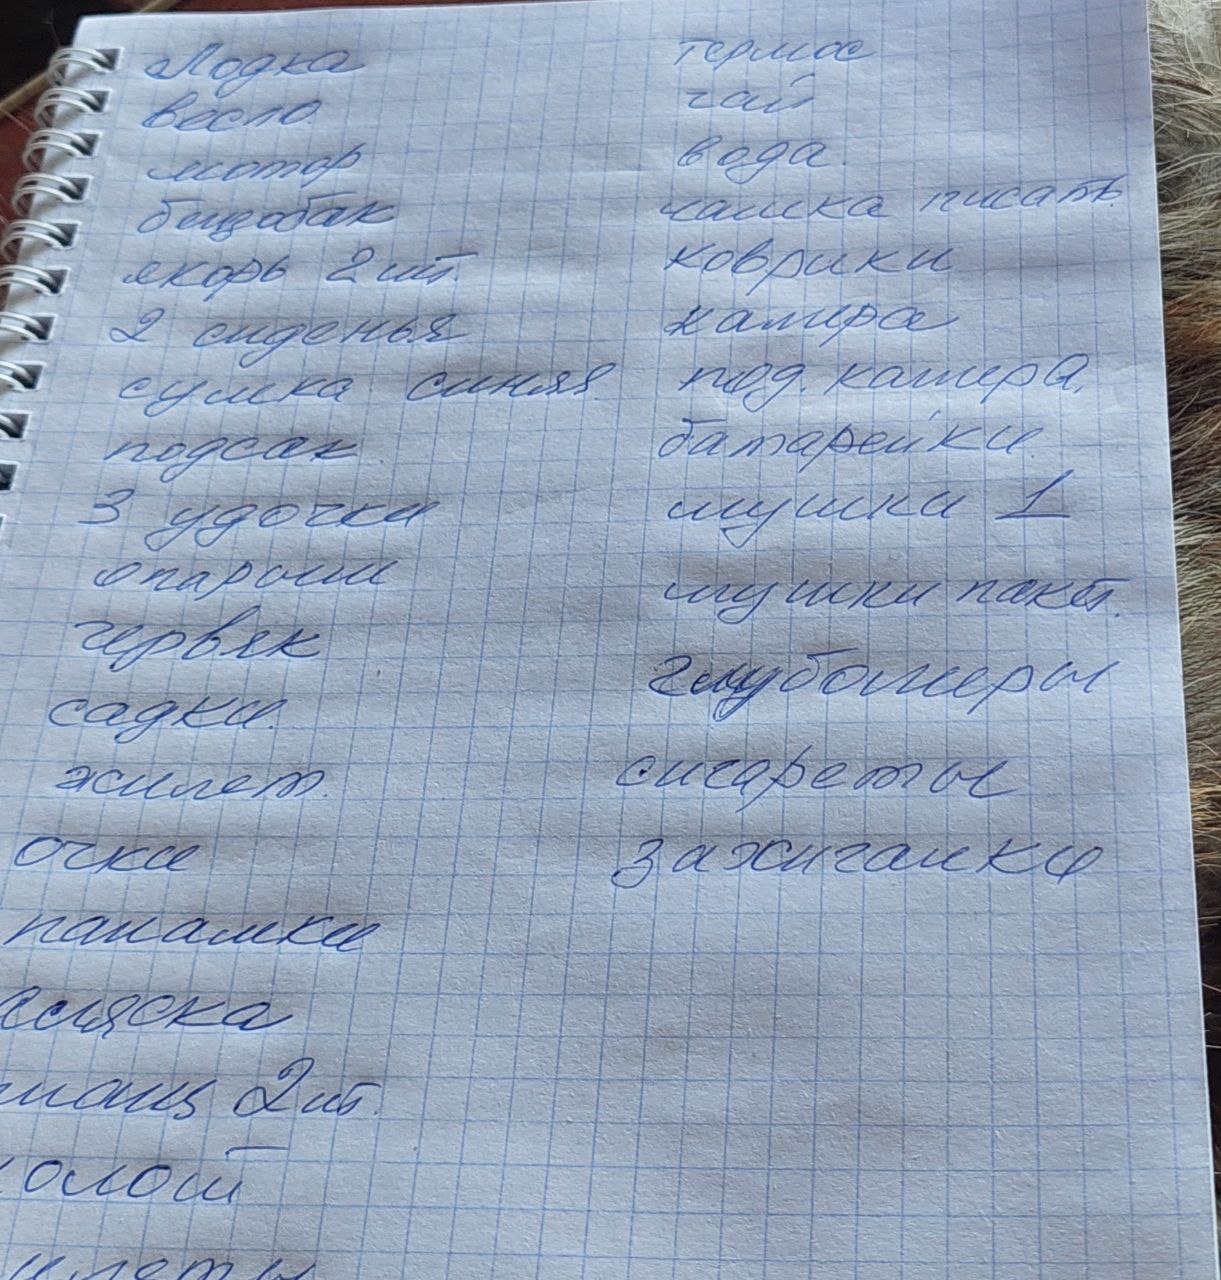 Лодка
весло
мотор
бензобак
якорь 2 шт.
2 сиденья
сумка синяя.
подсак.
3 удочки
опарыш
червяк
садки.
жилет.
очки
панамки
2 шт.
термос
чай
вода.
чашка писать.
коврики
камера
под. камера.
батарейки.
мушки 1
мушки пакет.
глубомеры
сигареты
зажигалки